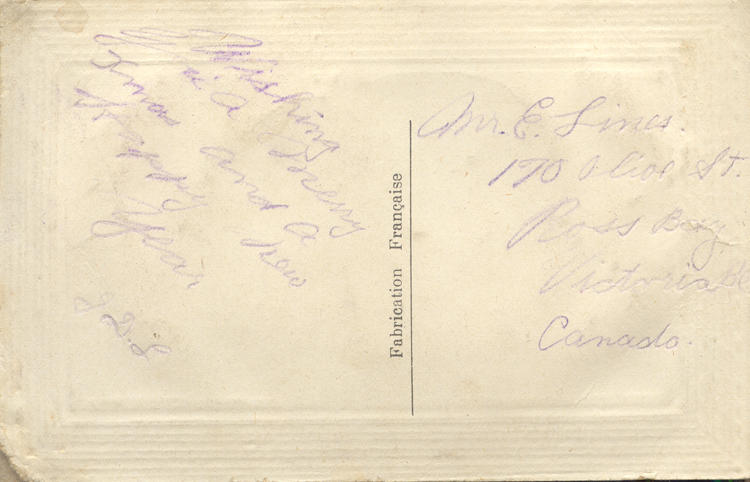 Wishing
a Merry
Xmas and a
Happy New
Year
J. D. L
Fabrication Française
Mr. E. Lines.
170 Olive St.
Ross Bay
Victoria
Canada.